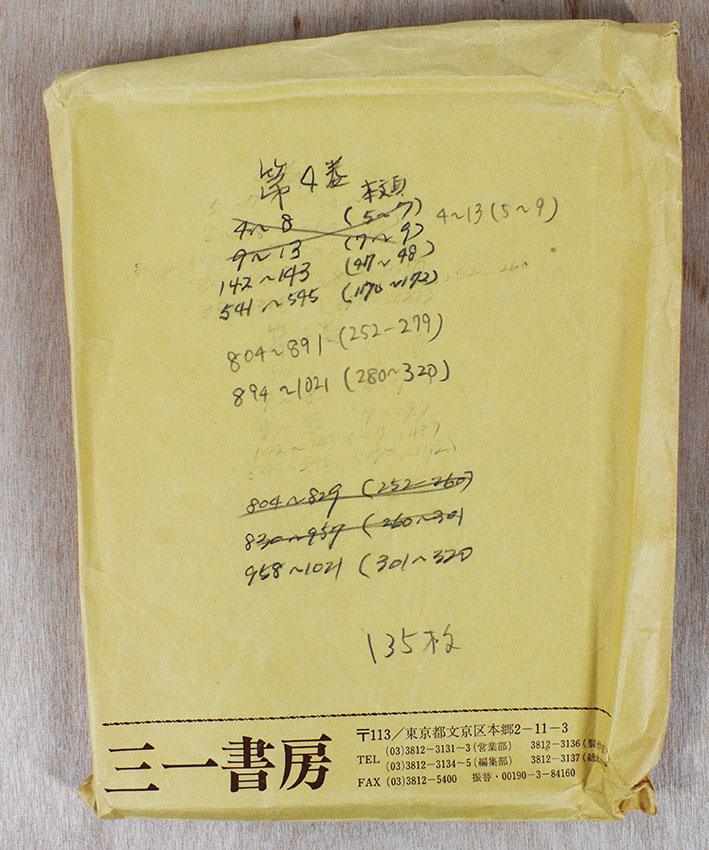 第4巻
本文頁
4〜8 (5〜7) 4〜13(5〜9)
9〜13 (7〜9)
142〜143 (47〜48)
541〜545 (170〜172)
804〜891(252-279)
894〜1021(280〜320)
804〜829 (252-260)
830〜957 (260〜301
958〜1021 (301〜320
135枚
三一書房
〒113/東京都文京区本郷2-11-3
TEL (03)3812-3131〜3(営業部) 3812-3136
(03)3812-3134〜5(編集部) 3812-3137
FAX (03)3812-5400 振替・00190-3-84160